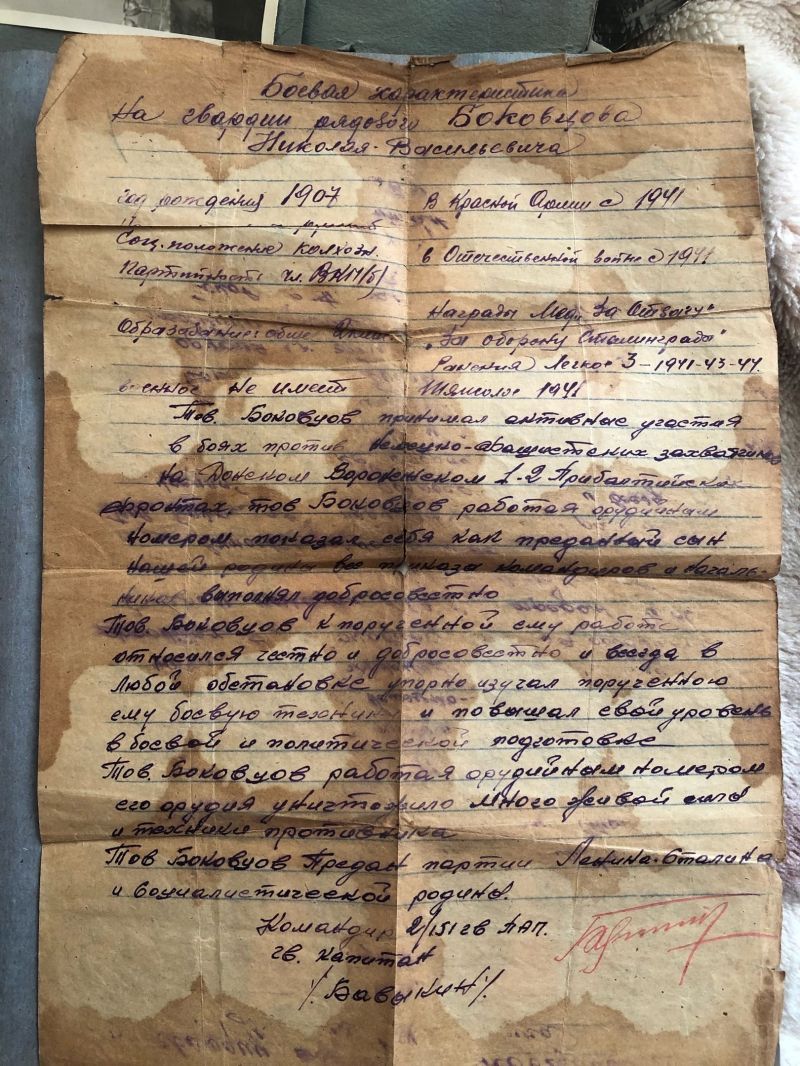 Боевая характеристика
На гвардии рядового Боковцова
Николая Васильевича
год рождения 1907
В Красной Армии с 1941
Соц. положение колхозн.
в Отечественной войне с 1941
Партитность чл. ВКП/б/
Награды Мед. "За Отвагу"
Образабание общее
"За оборону Сталинграда"
Ранения Легкое 3-1941-43-44.
военное не имеет
1941
Тов. Боковцов принимал активные участия
в боях против немецко-фашистских захватчиков
на Донском Воронежском 1-2 Прибалтийском
фронтах, тов Боковцов работая орудичным
номером показал себя как преданый сын
нашей родины все приказы командиров и началь-
ников выполнял добросовестно
Тов. Боковцов к порученной ему работе
относился честно и добросовестно и всегда в
любой обстановке упорно изучал порученною
ему боевую технику и повышал свой уровень
в боевой и политической подготовке
Тов. Боковцов работая орудийным номером
его орудия уничтожило много живой силы
и техники противника
Тов Боковцов Предан партии Ленина-Сталина
и социалистической родины.
Командир 2/151 гв ПАП.
гв. капитан
/Бавыкин/.